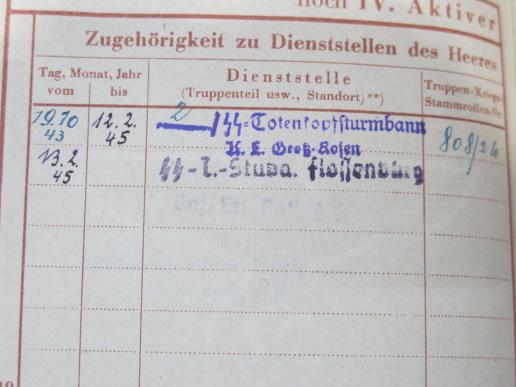 noch IV. Aktiver
Zugehörigkeit zu Dienststellen des Heeres
Tag, Monat, Jahr
vom bis
Dienststelle
(Truppenteil usw., Standort)**)
Truppen-(Kriegs-
Stammrollen-Nr.
19.10 43
12.2. 45
2/SS-Totenkopfsturmbann
K. L. Groß-Rosen
808/24
13.2. 45
SS-T.-Stuba. Flossenbürg